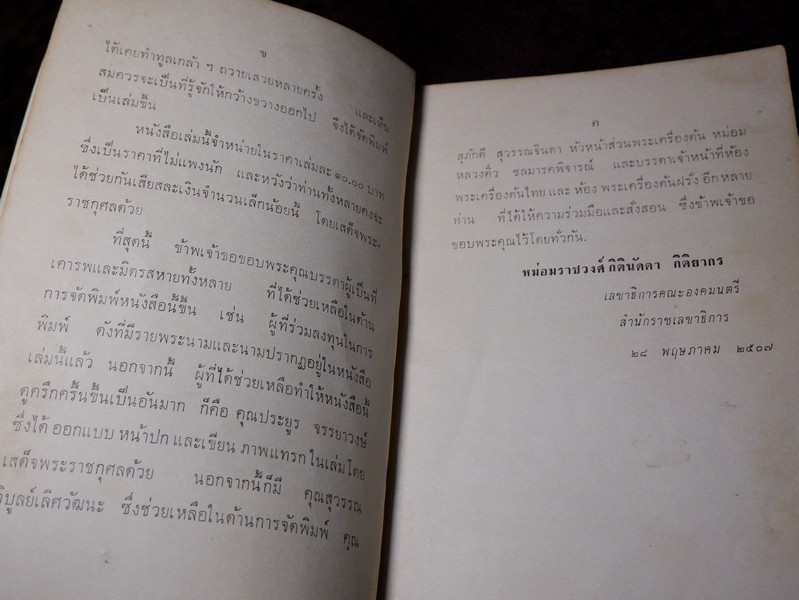 ข
ได้เคยทำทูลเกล้า ๆ ถวายเสวยหลายครั้ง และเห็น
สมควรจะเป็นที่รู้จักให้กว้างขวางออกไป จึงได้จัดพิมพ์
เป็นเล่มขึ้น
หนังสือเล่มนี้จำหน่ายในราคาเล่มละ ๑๐.๐๐ บาท
ซึ่งเป็นราคาที่ไม่แพงนัก และหวังว่าท่านทั้งหลายคงจะ
ได้ช่วยกันเสียสละเงินจำนวนเล็กน้อยนี้ โดยเสด็จพระ-
ราชกุศลด้วย
ที่สุดนี้ ข้าพเจ้าขอขอบพระคุณบรรดาผู้เป็นที่
เคารพและมิตรสหายทั้งหลาย ที่ได้ช่วยเหลือในด้าน
การจัดพิมพ์หนังสือนี้ขึ้น เช่น ผู้ที่ร่วมลงทุนในการ
พิมพ์ ดังที่มีรายพระนามและนามปรากฏอยู่ในหนังสือ
เล่มนี้แล้ว นอกจากนี้ ผู้ที่ได้ช่วยเหลือทำให้หนังสือนี้
ดูครึกครื้นขึ้นเป็นอันมาก ก็คือ คุณประยูร จรรยาวงษ์
ซึ่งได้ ออกแบบ หน้าปก และเขียน ภาพแทรก ในเล่มโดย
เสด็จพระราชกุศลด้วย นอกจากนี้ก็มี คุณสุวรรณ
วิบูลย์เลิศวัฒนะ ซึ่งช่วยเหลือในด้านการจัดพิมพ์ คุณ
ค
สุภักดี สุวรรณจินดา หัวหน้าส่วนพระเครื่องต้น หม่อม
หลวงติ๋ว ชลมารคพิจารณ์ และบรรดาเจ้าหน้าที่ห้อง
พระเครื่องต้นไทย และ ห้อง พระเครื่องต้นฝรั่ง อีก หลาย
ท่าน ที่ได้ให้ความร่วมมือและสั่งสอน ซึ่งข้าพเจ้าขอ
ขอบพระคุณไว้โดยทั่วกัน.
หม่อมราชวงศ์ กิตินัดดา กิติยากร
เลขาธิการคณะองคมนตรี
สำนักราชเลขาธิการ
๒๘ พฤษภาคม ๒๕๐๗